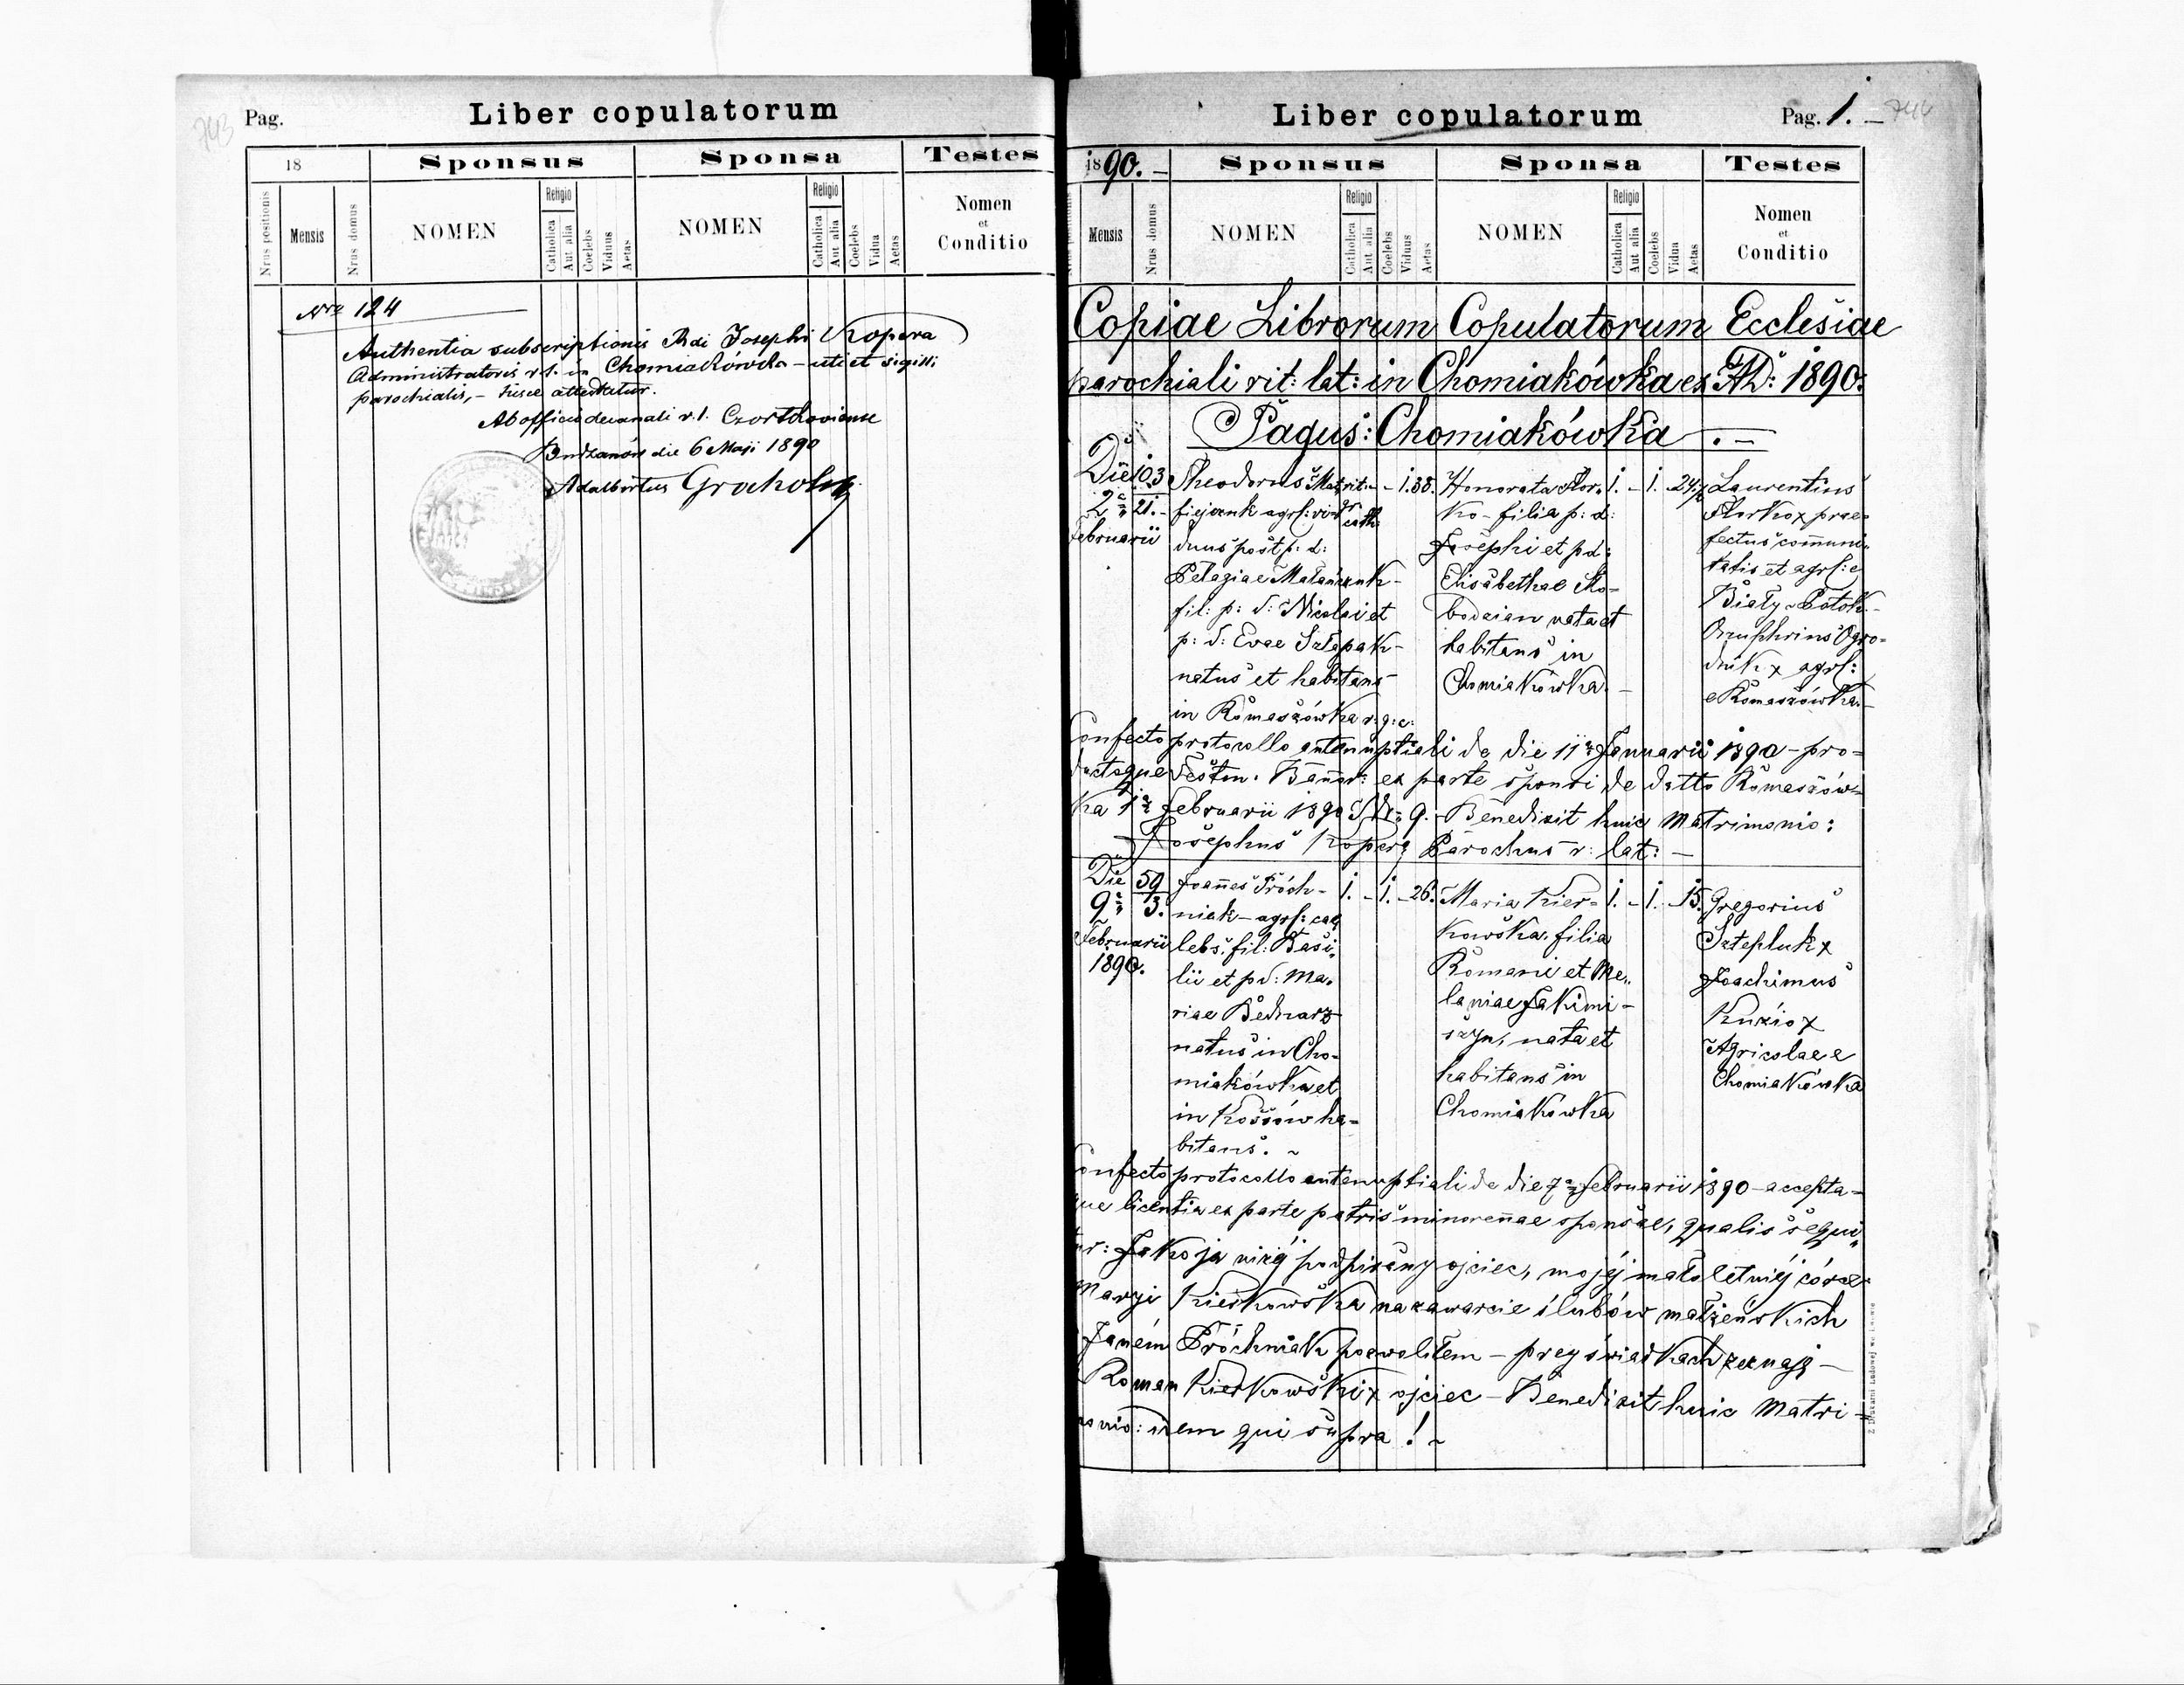 743
Pag.
Liber copulatorum
18
Sponsus
Sponsa
Testes
Nrus positionis
Mensis
Nrus domus
NOMEN
Religio
Catholica
Aut alia
Coelebs
Viduus
Aetas
NOMEN
Religio
Catholica
Aut alia
Coelebs
Vidua
Aetas
Nomen
et
Conditio
Nro 124
Authentia subscriptionis Rdi Josephi Kopera
Administratoris r. l. in Chomiakówka - uti et sigilli
parochialis, - hisce attestatur.
Ab officio decanali r. l. Czortkoviense
Budzanów die 6 Maji 1890
Adalbertus
Liber copulatorum
Pag. 1. - 744
1890. -
Sponsus
Sponsa
Testes
Mensis
Nrus domus
NOMEN
Religio
Catholica
Aut alia
Coelebs
Viduus
Aetas
NOMEN
Religio
Catholica
Aut alia
Coelebs
Vidua
Aetas
Nomen
et
Conditio
Copiae Librorum Copulatorum Ecclesiae
parochiali rit: lat: in Chomiakówka ex AD: 1890:
Pagus: Chomiakówka . -
Die
2a
Februarii
103
21. -
Theodorus Mat
fiejczuk agrl: vi
duus post p: d:
Pelagiae
fil: p: d: Nicolai et
p: d: Evae Szlapak -
natus et habitans
in Romaszówka r: g: c:
rit: gr cath:
- 1. 38.
Honorata Flor
ko - filia p: d:
Josephi et p d:
Elisabethae
nata et
habitans in
Chomiakówka. -
1. - 1. - 24
Laurentius
Florko x prae=
fectus communi=
tatis et agrl: e
Biały-Potok. -
Onuphrius Ogro=
dnik x agrl:
e Romaszówka. -
Confecto protocollo antenuptiali de die 11a Januarii 1890 - pro=
ductoque Testim. Bannor: ex parte sponsi de datto Romaszów=
ka 1a Februarii 1890 Nr: 9. - Benedixit huic Matrimonio:
Josephus Kopera Parochus r: lat: -
Die
9a
Februarii
1890.
59
3.
Joannes Próch-
niak - agrl: cae
lebs. fil: Basi
lii et p d: Ma
riae Bednarz
natus in Cho-
miakówka et
in Kossów ha=
bitans. ~
1. - 1. - 26.
Maria Kier=
kowska. filia
Romani et Me
laniae Jakimi-
szyn, nata et
habitans in
Chomiakówka
1. - 1. - 15.
Gregorius
Szlepluk x
Joachimus
Kuzio x
Agricolae e
Chomiakówka
Confecto protocollo antenuptiali de die 7a Februarii 1890 - accepta=
que licentia ex parte patris minorennae sponsae, qualis sequi
tur: Jako ja niżej podpisany ojciec, mojéj małoletniéj córce
Maryi Kierkowska na zawarcie ślubów małżeńskich
Janem Próchniak pozwoliłem - przy świadkach zeznaję -
Roman Kierkowski x ojciec - Benedixit huic Matri=
monio: idem qui supra ! ~